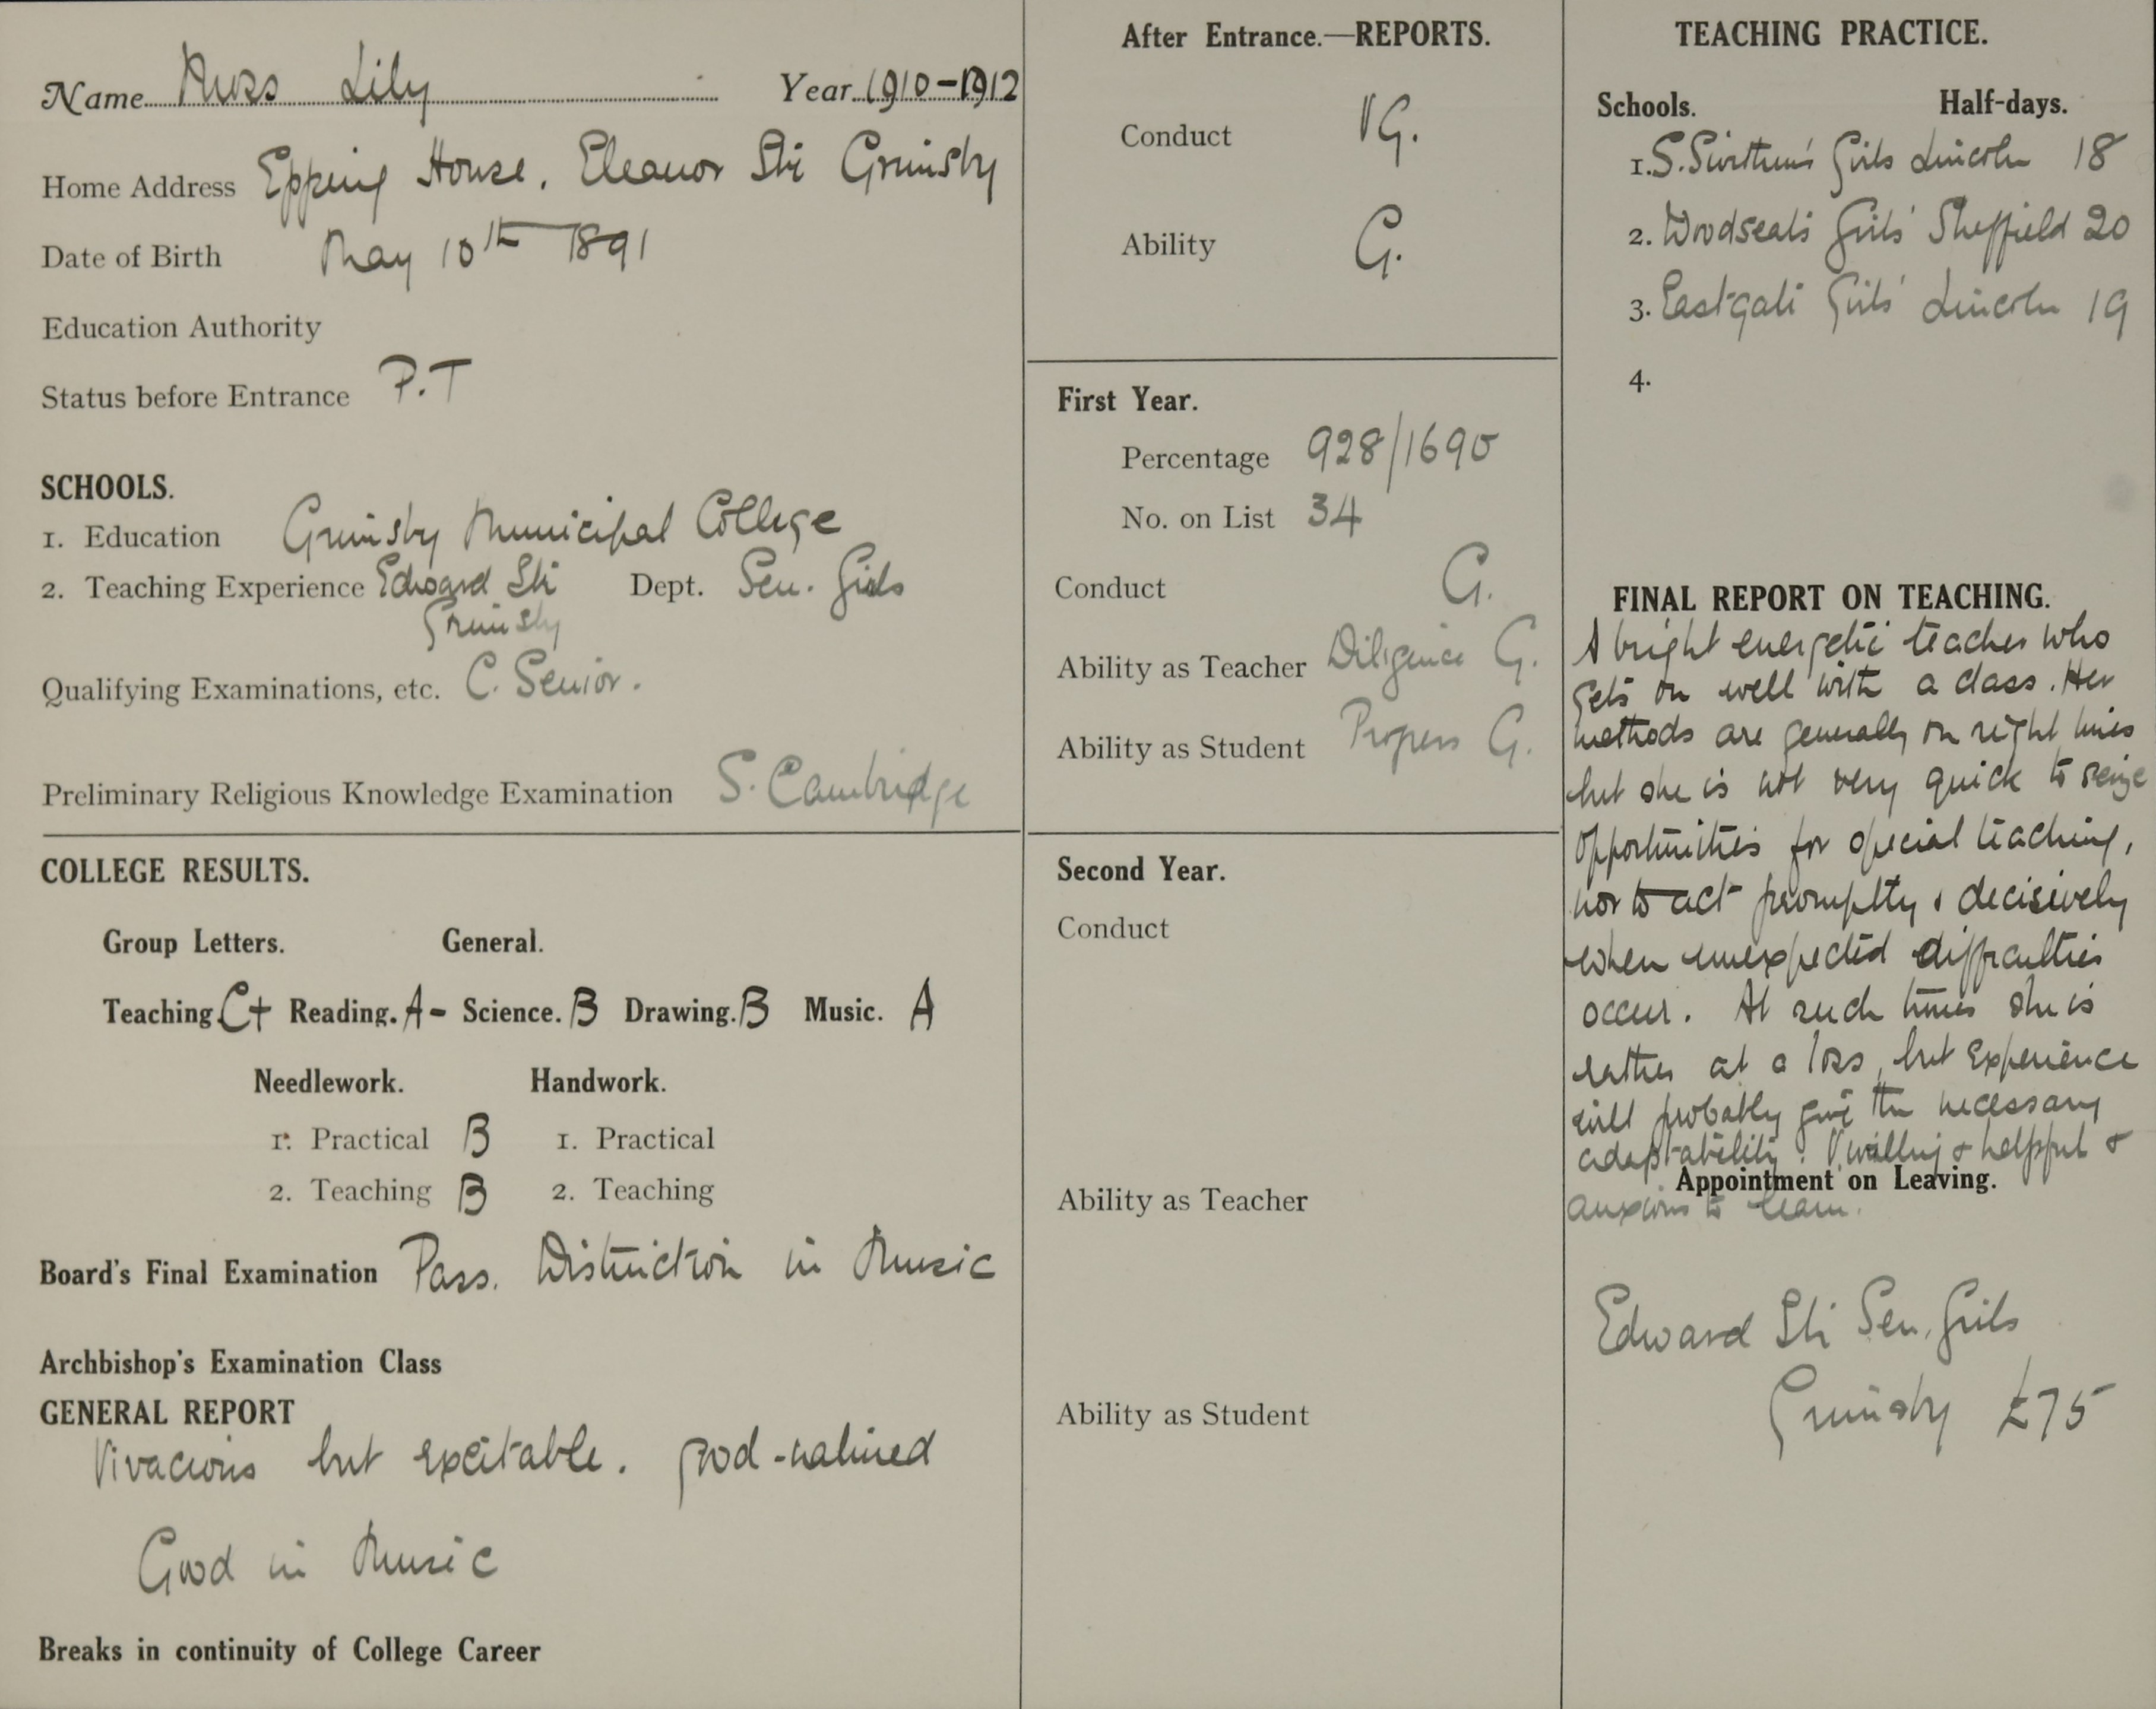 Name Moss Lily Year 1910-1912
Home Address Epping House, Eleanor Str Grimsby
Date of Birth May 10th 1891
Education Authority
Status before Entrance P.T
SCHOOLS.
1. Education Grimsby Municipal College
2. Teaching Experience Edward Str Dept. Sen. Girls
Grimsby
Qualifying Examinations, etc. C. Senior.
Preliminary Religious Knowledge Examination S. Cambridge
COLLEGE RESULTS.
Group Letters. General.
Teaching. C+ Reading. A- Science. B Drawing. B Music. A
Needlework. Handwork.
1. Practical B 1. Practical
2. Teaching B 2. Teaching
Board's Final Examination Pass. Distinction in Music
Archbishop's Examination Class
GENERAL REPORT
Vivacious but excitable. good-natured
Good in Music
Breaks in continuity of College Career
After Entrance.—REPORTS.
Conduct VG.
Ability G.
First Year.
Percentage 928/1690
No. on List 34
Conduct G.
Ability as Teacher Diligence G.
Ability as Student Progress G.
Second Year.
Conduct
Ability as Teacher
Ability as Student
TEACHING PRACTICE.
Schools. Half-days.
1. S. Swithun's Girls Lincoln 18
2. Woodseats Girls' Sheffield 20
3. Eastgate Girls' Lincoln 19
4.
FINAL REPORT ON TEACHING.
A bright energetic teacher who
gets on well with a class. Her
methods are generally on right lines
but she is not very quick to seize
opportunities for special teaching,
nor to act promptly & decisively
when unexpected difficulties
occur. At such times she is
rather at a loss, but experience
will probably give the necessary
adaptability. V. willing & helpful &
anxious to learn.
Appointment on Leaving.
Edward Str Sen. Girls
Grimsby £75